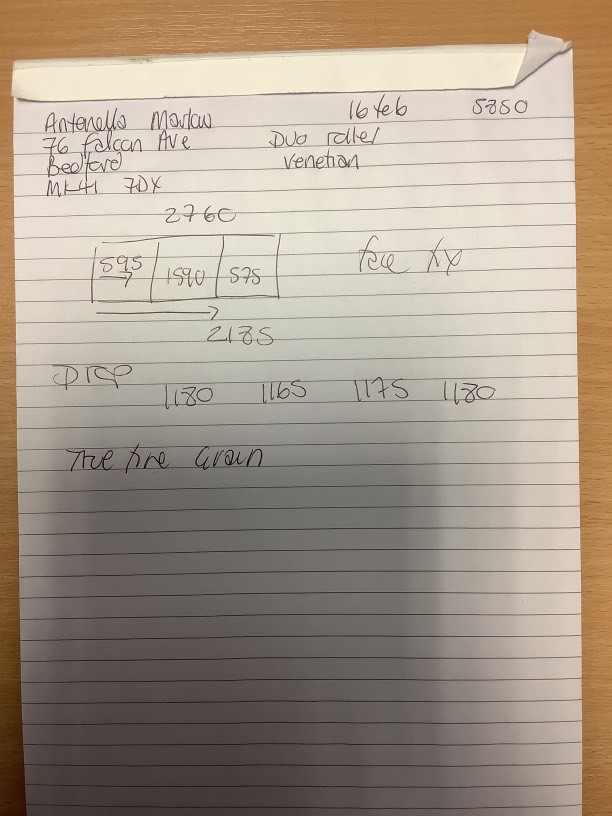 Antonello Marlow 16 feb 5850
76 falcan Ave Duo roller
Bedford Venetian
MK41 7DX
2760
595 1590 575 face fix
2185
Drop
1180 1165 1175 1180
True fine Grain